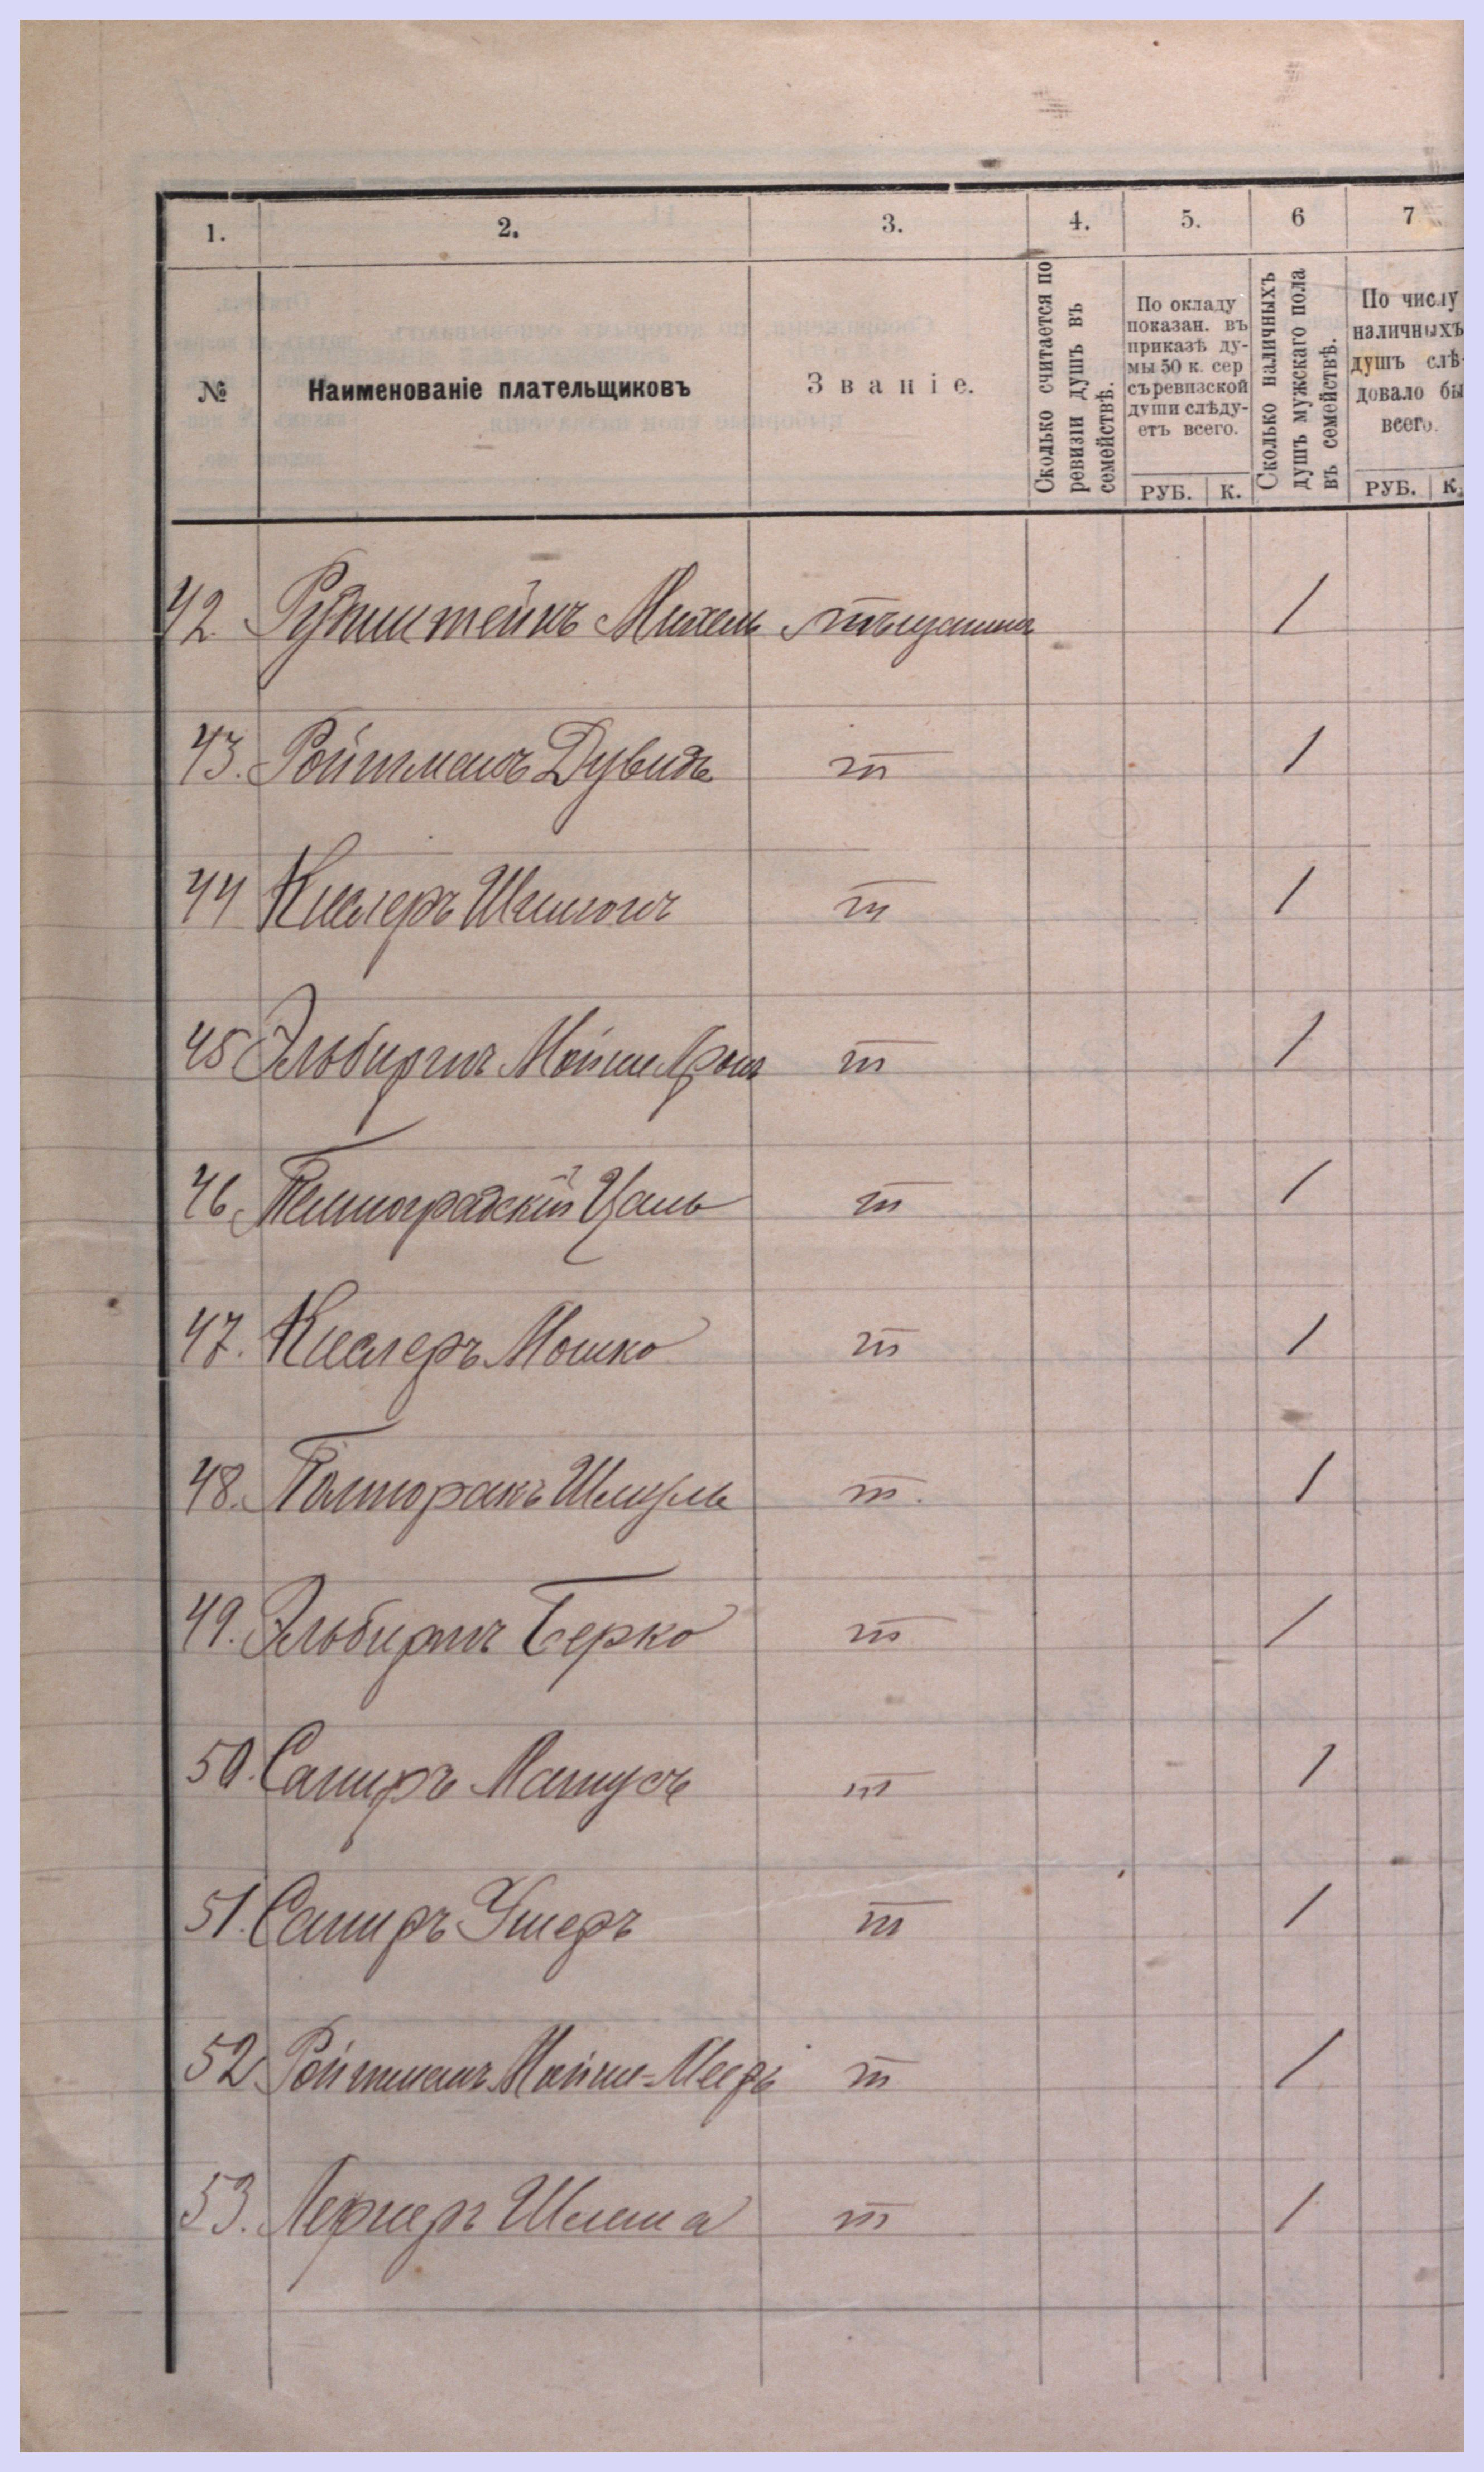 1. 2. 3. 4. 5. 6 7
№
Наименованіе плательщиковъ
Званіе.
Сколько считается по
ревизіи душъ въ
семействѣ.
По окладу
показан. въ
приказѣ ду-
мы 50 к. сер
съ ревизской
души слѣду-
етъ всего.
РУБ. К.
Сколько наличныхъ
душъ мужскаго пола
въ семействѣ.
По числу
наличныхъ
душъ слѣ-
довало бы
всего.
РУБ. К.
42 Рубинштейнъ Михель мѣщанинъ 1
43. Ройтманъ Дувидъ т 1
44 Кислеръ Шимонъ т 1
45 Эльбирнъ Мойше Аронъ т 1
46. Темноградскій Цаль т 1
47. Кислеръ Мошко т 1
48. Полторакъ Шмуль т. 1
49. Эльбирнъ Берко т 1
50. Сапиръ Матусъ т 1
51. Сапиръ Ушеръ т 1
52 Ройтманъ Мойше-Мееръ т 1
53. Лернеръ Шлема т 1